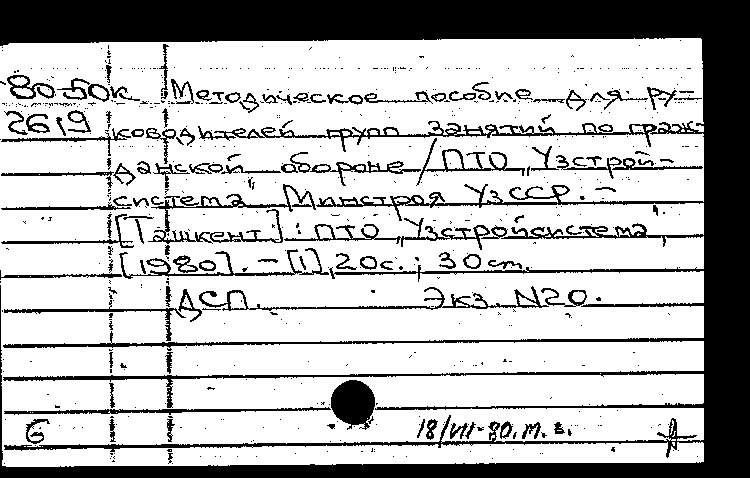 80-50к Методическое пособие для ру-
2619 ководителей групп занятий по граж-
данской обороне / ПТО „Узстрой-
система" Минстроя УзССР. –
[Ташкент] : ПТО „Узстройсистема",
[1980]. – [1], 20 с. ; 30 см.
ДСП. Экз. N20.
6 18/VII-80. М. З.